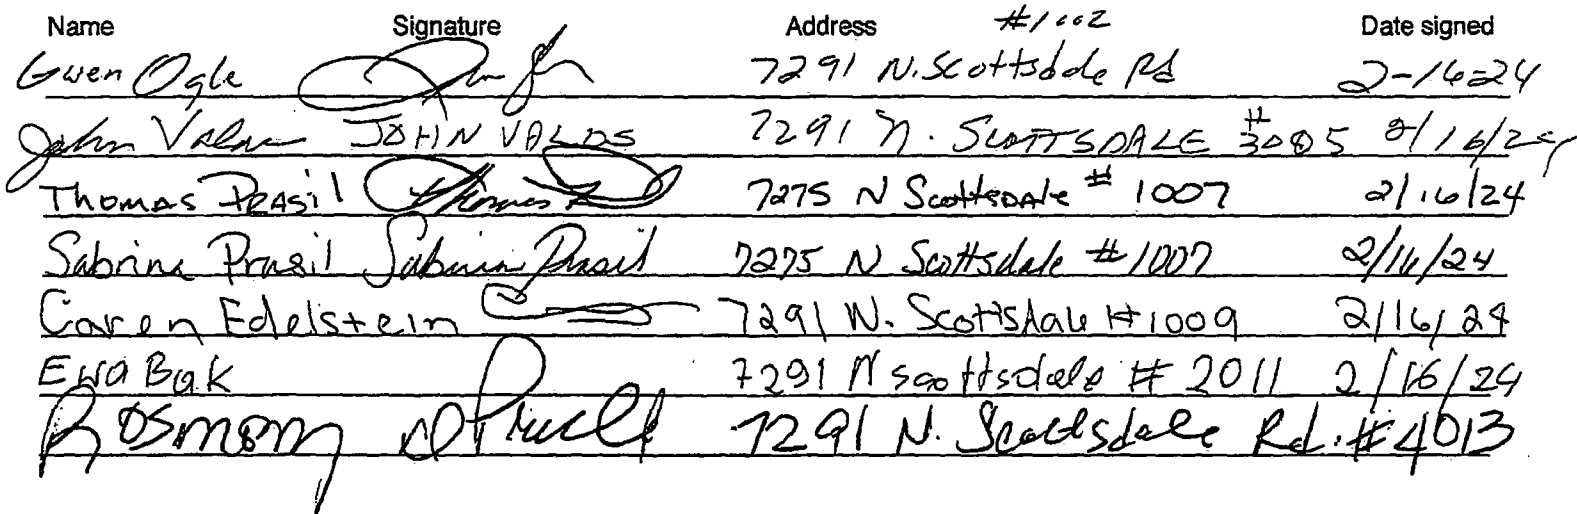 Name Signature Address #1002 Date signed
Gwen Ogle 7291 N. Scottsdale Rd 2-16-24
John Valds JOHN VALDS 7291 N. SCOTTSDALE #3005 2/16/24
Thomas Prasil Thomas 7275 N Scottsdale # 1007 2/16/24
Sabrina Prasil Sabrina Prasil 7275 N Scottsdale #1007 2/16/24
Caren Edelstein 7291 N. Scottsdale #1009 2/16/24
Ewa Bak 7291 N Scottsdale # 2011 2/16/24
7291 N. Scottsdale Rd. #4013